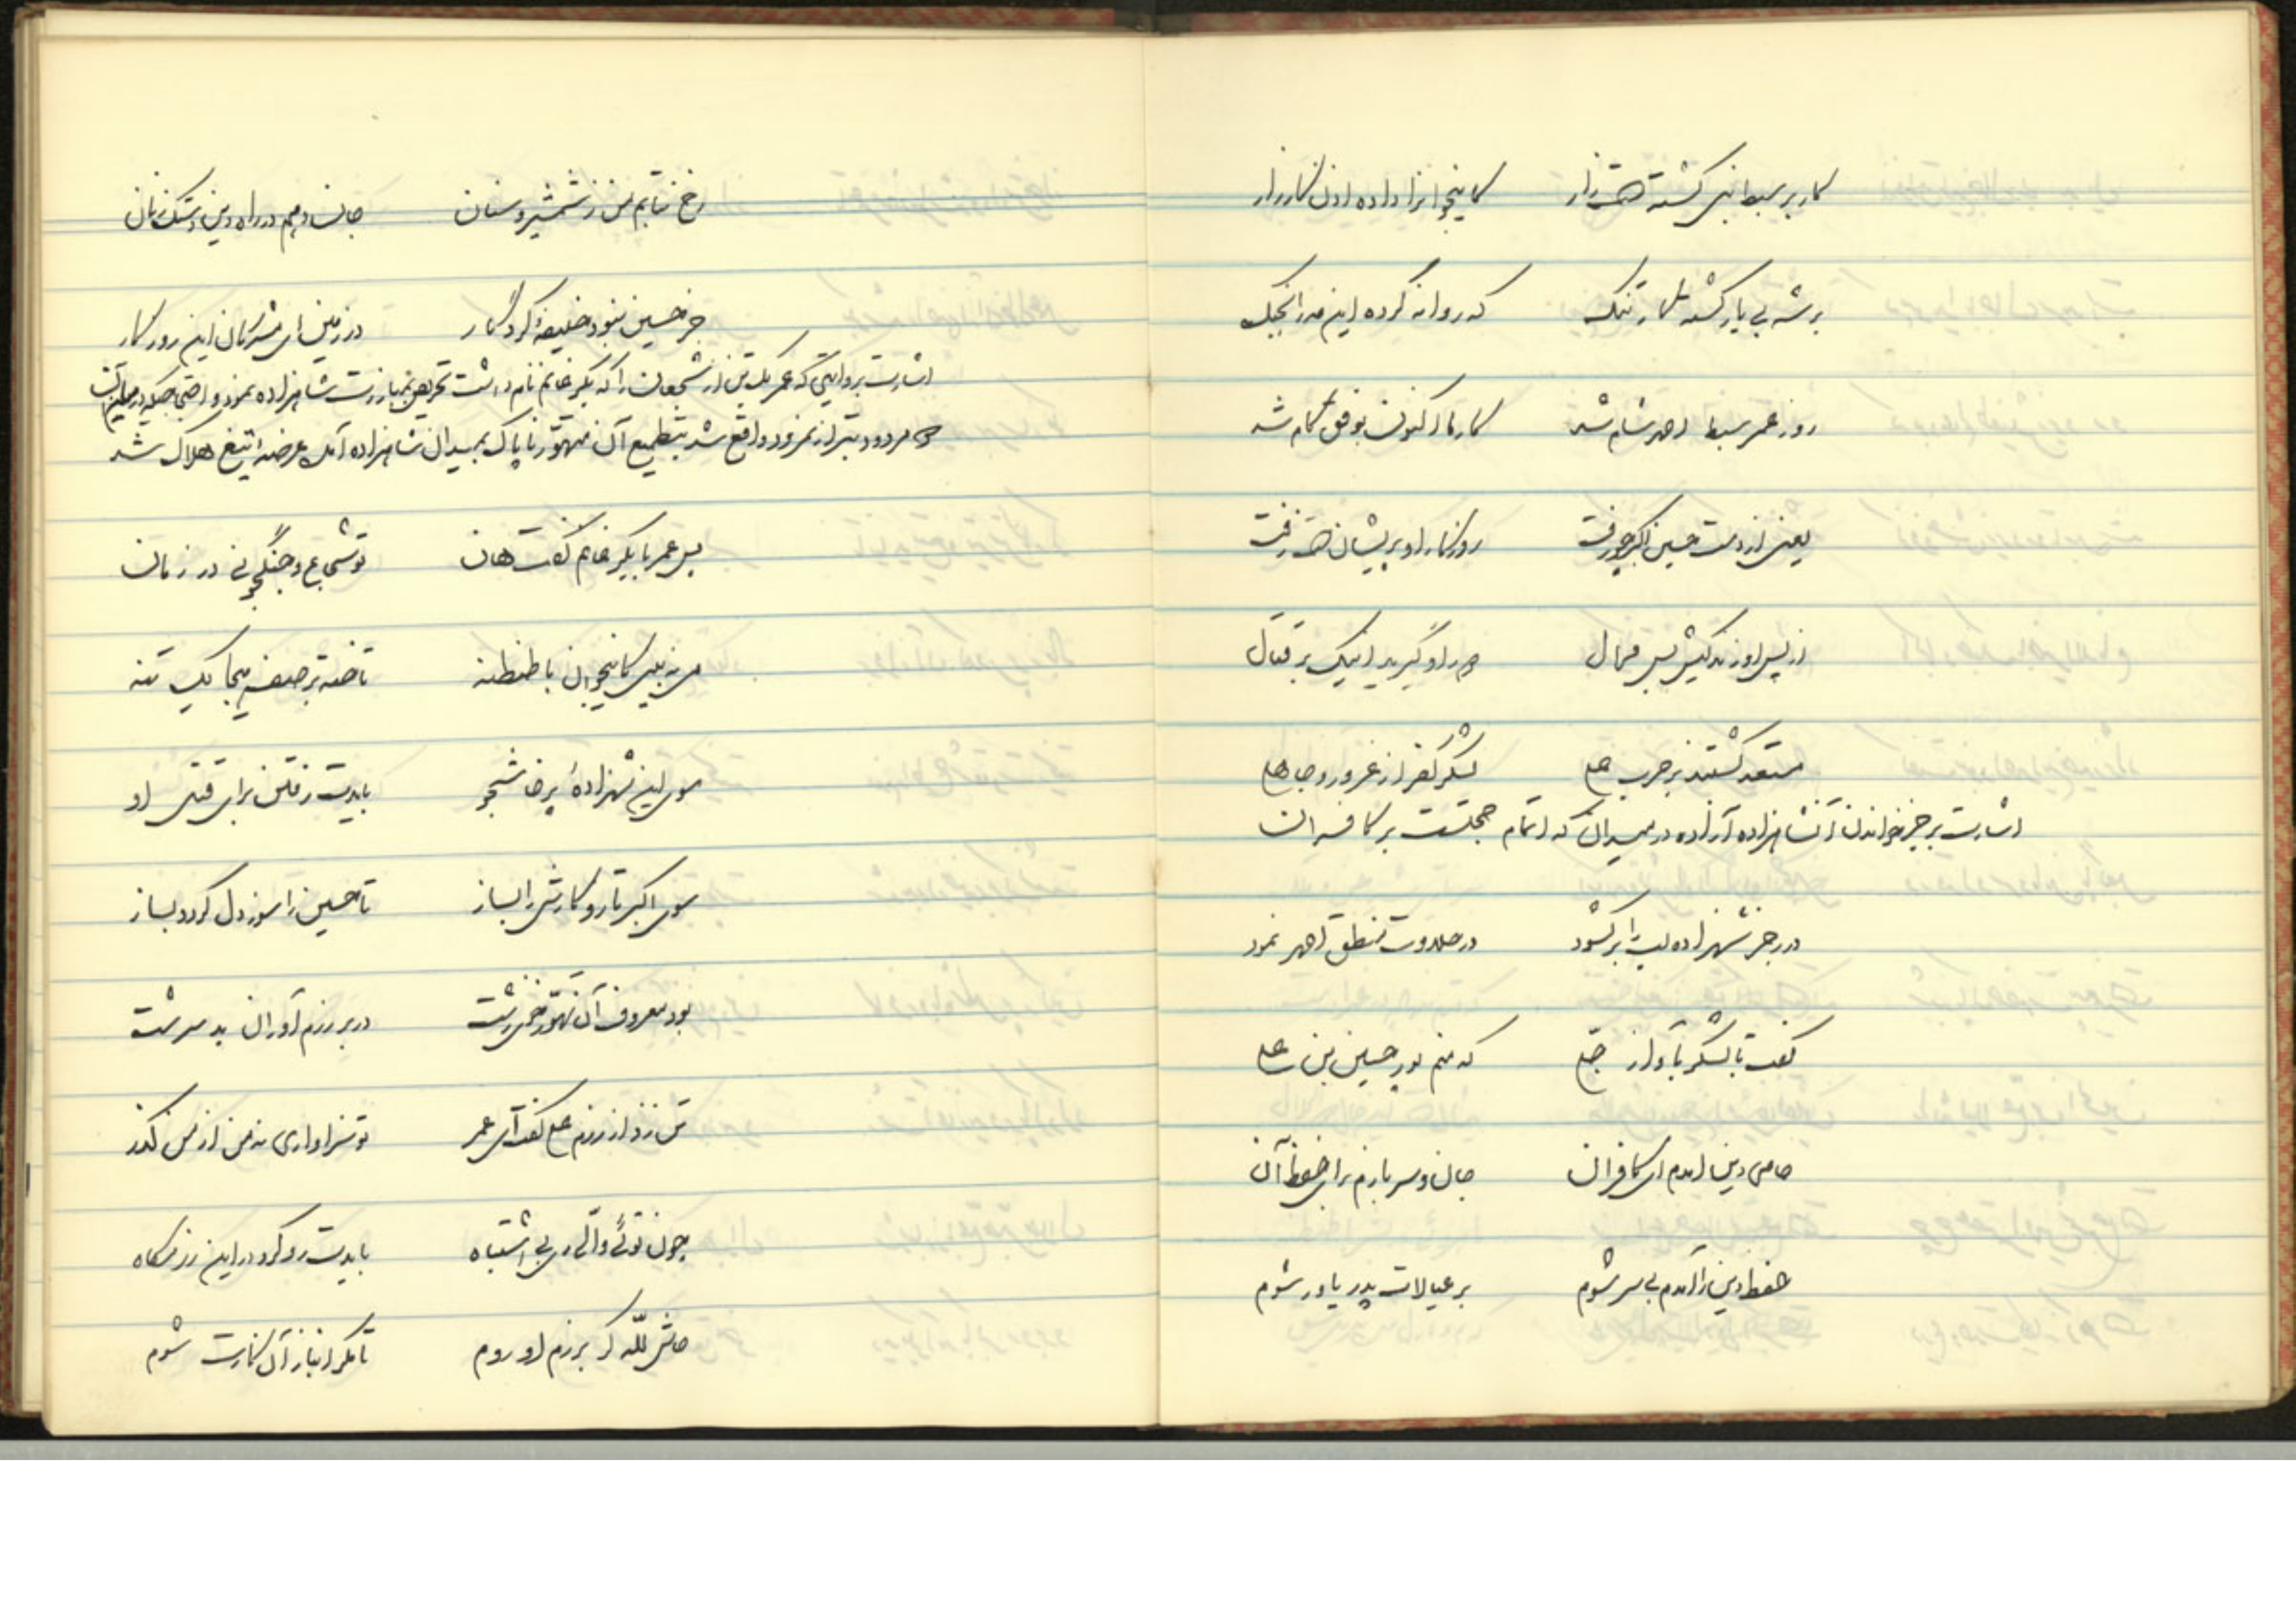 کار بر سبط نبی گشته است زار کاینجوانرا داده اذن کارزار
بر شه بی یار گشته کار تنگ که روانه کرده این مه را بجنگ
روز عمر سبط احمد شام شد کار ما اکنون بوفق کام شد
یعنی از دست حسین اکبر چو رفت روزگار او پریشان است زفت
از پس او زندگیش بس محال او گیرید اینک بر قتال
مستعد گشتند بر حرب علی لشکر کفر از غرور و جاهلی
اشارت برجز خواندن آنشاهزاده آزاده در میدان که اتمام حجتست بر کافران
در رجز شهزاده لب را بر گشود در حلاوت نطق احمد نمود
گفت با لشکر بآواز جلی که منم پور حسین بن علی
حامی دین آمدم ای کافران جان و سر بازم برای حفظ آن
حفظ دین را آمدم بی سر شوم بر عیالات پدر یاور شوم
رخ نتابم من ز شمشیر و سنان جان دهم در راه دین بیشک زمان
جز حسین نبود خلیفه کردگار در زمین ای مشرکان این روزگار
اشارت بروایتی که عمر یک تن از شجعان را که بکر غانم نام داشت تحریص بمبارزت شاهزاده نمود و احتجاجیکه در میان آن
دو مردود بتر از نمرود واقع شد بتطمیع آن متهور ناپاک بمیدان شاهزاده آمد عرضه تیغ هلاک شد
پس عمر با بکر غانم گفت هان تو شجاع و جنگجوئی در زمان
می نه بینی کاینجوان با طنطنه تاخته بر صف هیجا یک تنه
سوی این شهزاده پرخاشجو بایدت رفتن برای قتل او
سوی اکبر تاز و کارش را بساز تا حسین را سوز دل گردد بساز
بود معروف آن تهور خوی زشت در بر رزم آوران بد سرشت
تن زد از رزم علی گفت ای عمر تو سزاواری نه من از من گذر
چون توئی والی ری بی اشتباه بایدت رو کرد در این رزمگاه
حاش لله گر برزم او روم تا مگر انباز آن کارت شوم